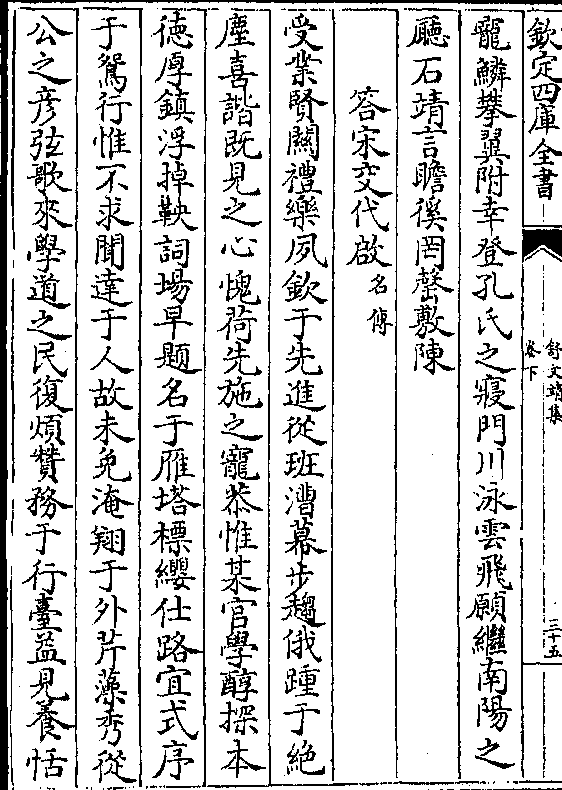 欽定四庫全書
舒文靖集
卷下
三十五
龍鱗攀翼附幸登孔氏之寢門川泳雲飛願繼南陽之
廳石靖言瞻徯罔罄敷陳
答宋交代啟名傅
受業賢關禮樂夙欽于先進從班漕幕步趨俄踵于絶
塵喜諧既見之心愧荷先施之寵恭惟某官學醇探本
徳厚鎮浮掉鞅詞場早題名于雁塔標纓仕路宜式序
于鴛行惟不求聞達于人故未免淹翔于外芹藻秀從
公之彦弦歌來學道之民復煩贊務于行臺益見養恬